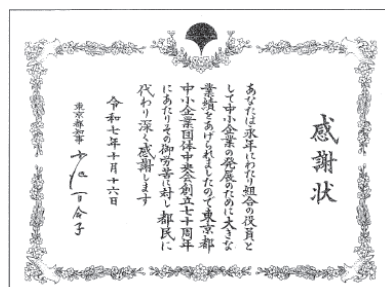 感謝状
あなたは永年にわたり組合の役員と
して中小企業の発展のために大きな
業績をあげられましたので東京都
中小企業団体中央会創立七十周年
にあたりその御労苦に対し都民に
代わり深く感謝します
令和七年十月十六日
東京都知事 小池百合子